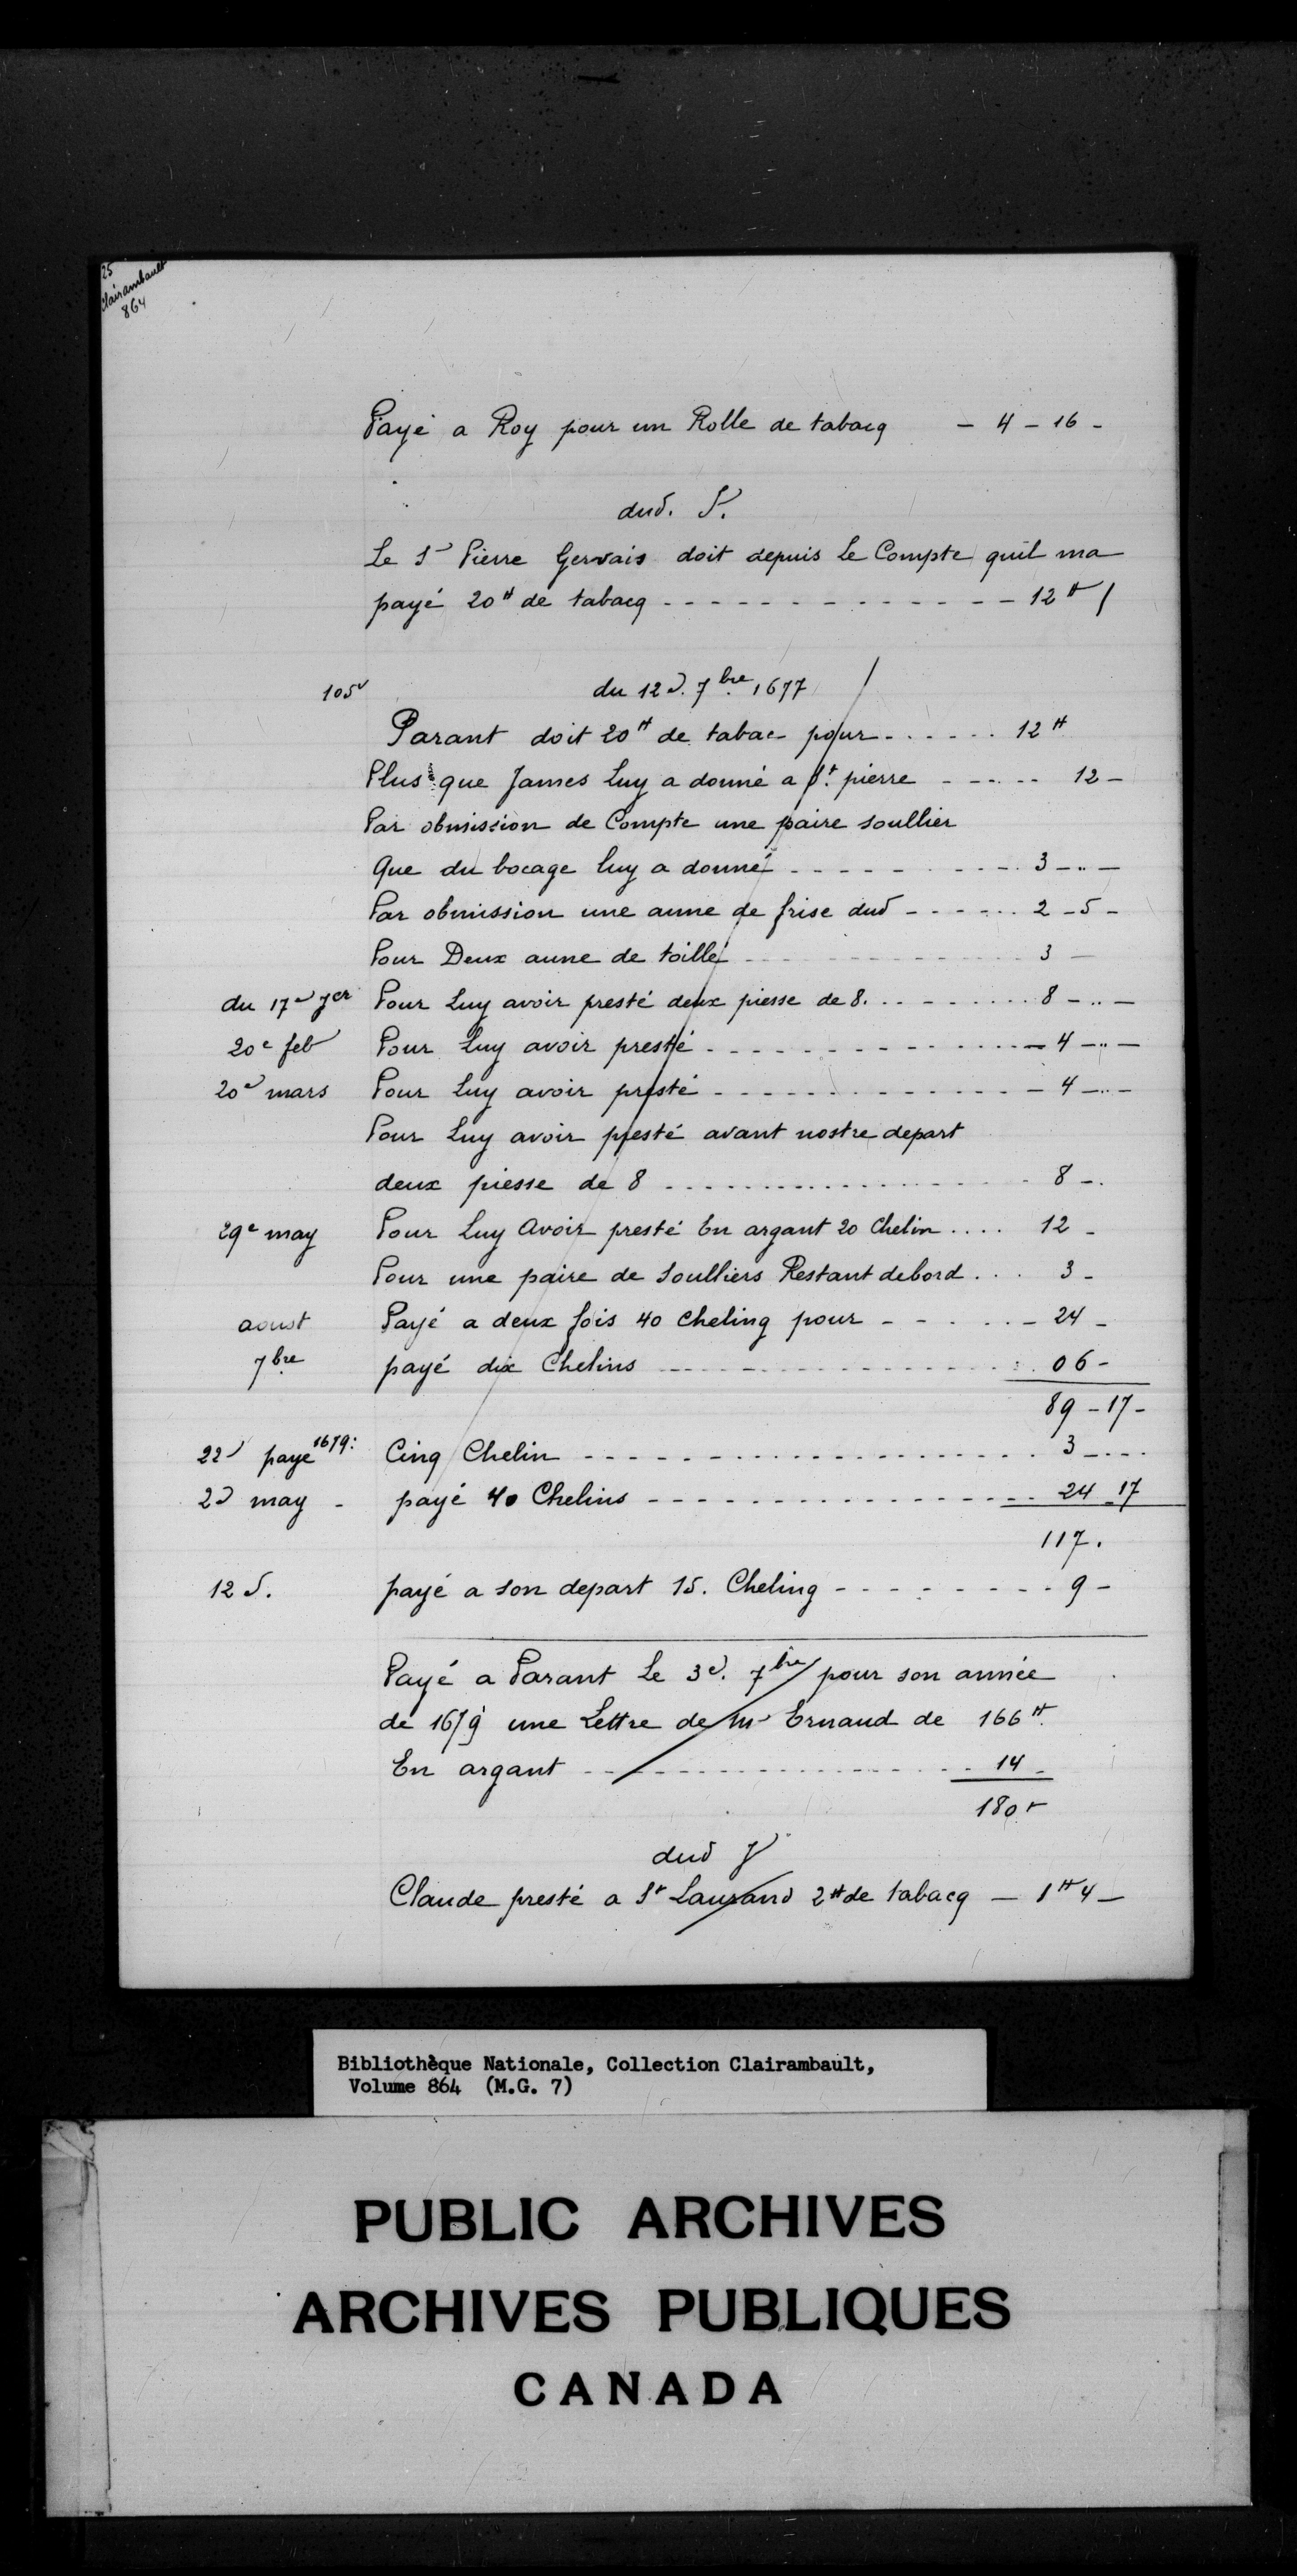 25
Clairambault
864
Payé a Roy pour un Rolle de tabacq - 4 - 16 -
dud. J.
Le Sr Pierre Gervais doit depuis Le Compte quil ma
payé 20tt de tabacq - - - - - - - - - - - - - 12tt
105v du 12 d. 7bre 1677
Parant doit 20tt de tabac pour . . . . . . 12tt
Plus que James Luy a donné a St. pierre - - - - - 12 -
Par obmission de Compte une paire soullier
Que du bocage luy a donné - - - - - - - - - 3 - .. -
Par obmission une aune de frise dud - - - - - 2 - 5 -
Pour Deux aune de toille - - - - - - - - - 3 -
du 17e Jer Pour Luy avoir presté deux piesse de 8. - - - - - - 8 - .. -
20e feb Pour Luy avoir presté - - - - - - - - - - - 4 - .. -
20e mars Pour Luy avoir presté - - - - - - - - - - - 4 - .. -
Pour Luy avoir presté avant nostre depart
deux piesse de 8 - - - - - - - - - - - - 8 - .
29e may Pour Luy Avoir presté En argant 20 Chelin . . . . 12 -
Pour une paire de Soulliers Restant debord . . . 3 -
aoust Payé a deux fois 40 cheling pour - - - - - - 24 -
7bre payé dix Chelins - - - - - - - - - - - 06 -
89 - 17 -
22 paye 1679: Cinq Chelin - - - - - - - - - - - - - 3 - . . .
2d may - payé 40 Chelins - - - - - - - - - - - - 24 - 17
117 .
12 J. payé a son depart 15. Cheling - - - - - - - - 9 -
Payé a Parant Le 3d. 7bre pour son année
de 1679 une Lettre de Mr Ernaud de 166tt.
En argant - - - - - - - - - - - - 14 -
180 -
dud J
Claude presté a St Laurand 2tt de tabacq - 1tt 4 -
Bibliothèque Nationale, Collection Clairambault,
Volume 864 (M.G. 7)
PUBLIC ARCHIVES
ARCHIVES PUBLIQUES
CANADA